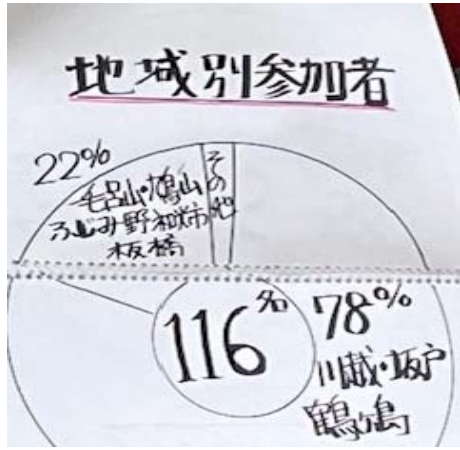 地域別参加者
22%
毛呂山・鳩山
ふじみ野和光市
板橋
その他
116名
78%
川越・坂戸
鶴ヶ島